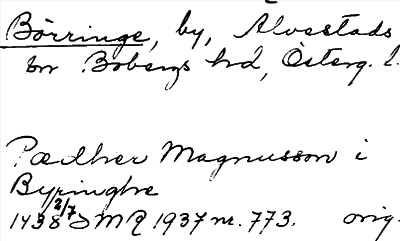 Börringe, by, Älvestads
sn Bobergs hd, Österg. l.
Pædher Magnusson i
Byringhe
1438 2/7 SMR 1937 nr. 773. orig.